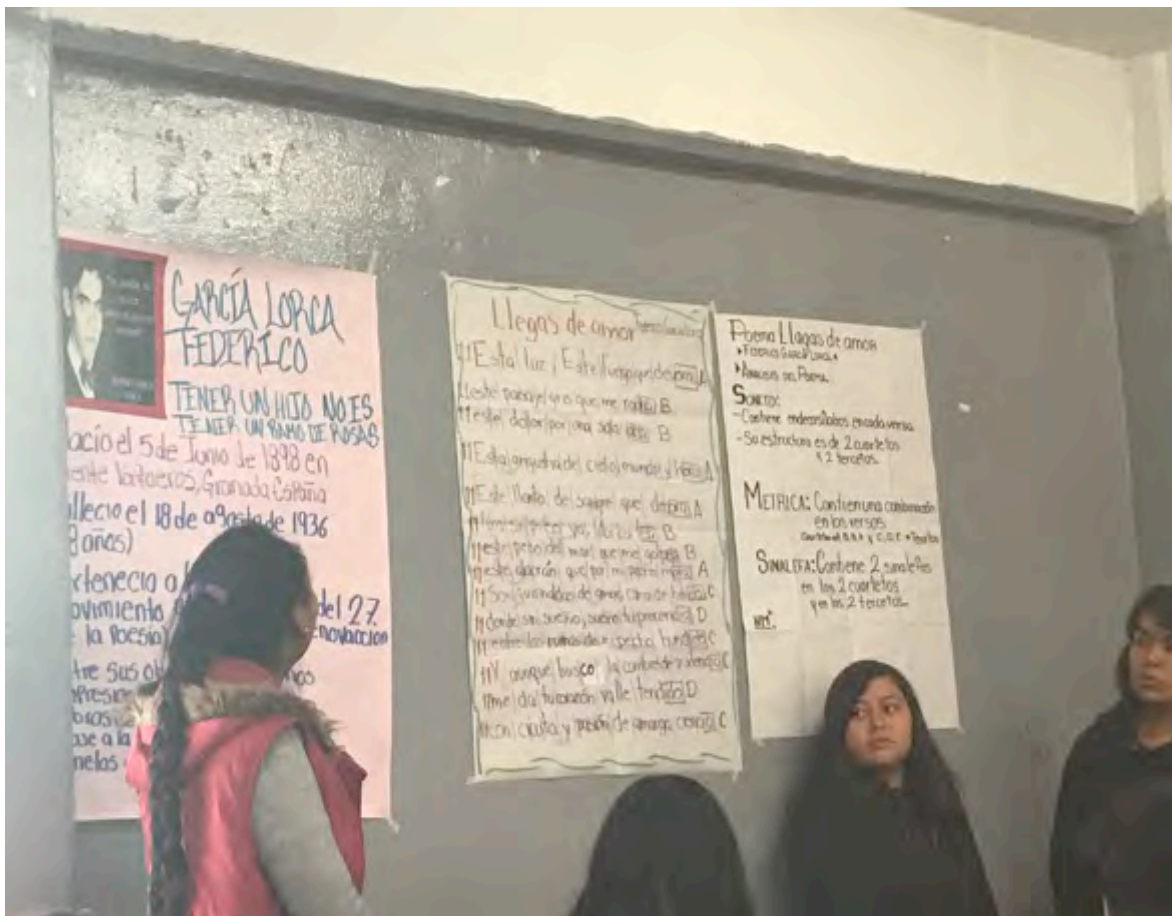 GARCÍA LORCA
FEDERICO
TENER UN HIJO NO ES
TENER UN RAMO DE ROSAS
acío el 5 de Junio de 1898 en
ente Vaqueros, Granada España
llecio el 18 de agosto de 1936
8 años)
rtenecio a
ovimiento del 27.
la Poesia) enovación
tre sus ob
presio
bras
ase a la
nelas
Llegas de amor
11 Esta luz, Este fuego que devora A
11 este paisaje gris que me rodea B
11 este dolor por una sola idea B
11 Esta angustia del cielo, mundo y hora A
11 Este llanto de sangre que decora A
B
11 este peso del mar que me golpea B
11 este alacrán que por mi pecho mora A
11 Son guirnaldas de amor, cama de herido C
11 donde sin sueño, sueño tu presencia D
11 entre las ruinas de mi pecho hundido C
11 Y aunque busco la cumbre de prudencia C
11 me da tu corazón valle tendido D
11 con cicuta y pasión de amarga ciencia C
Poema Llagas de amor
FEDERICO GARCÍA LORCA
ANALISIS DEL POEMA
SONETO:
- Contiene endecasílabos en cada verso
- Su estructura es de 2 cuartetos
y 2 tercetos
METRICA: Contiene una combinación
en los versos
y C, D, C
SINALEFA: Contiene 2 sinalefas
en los 2 cuartetos
y en los 2 tercetos